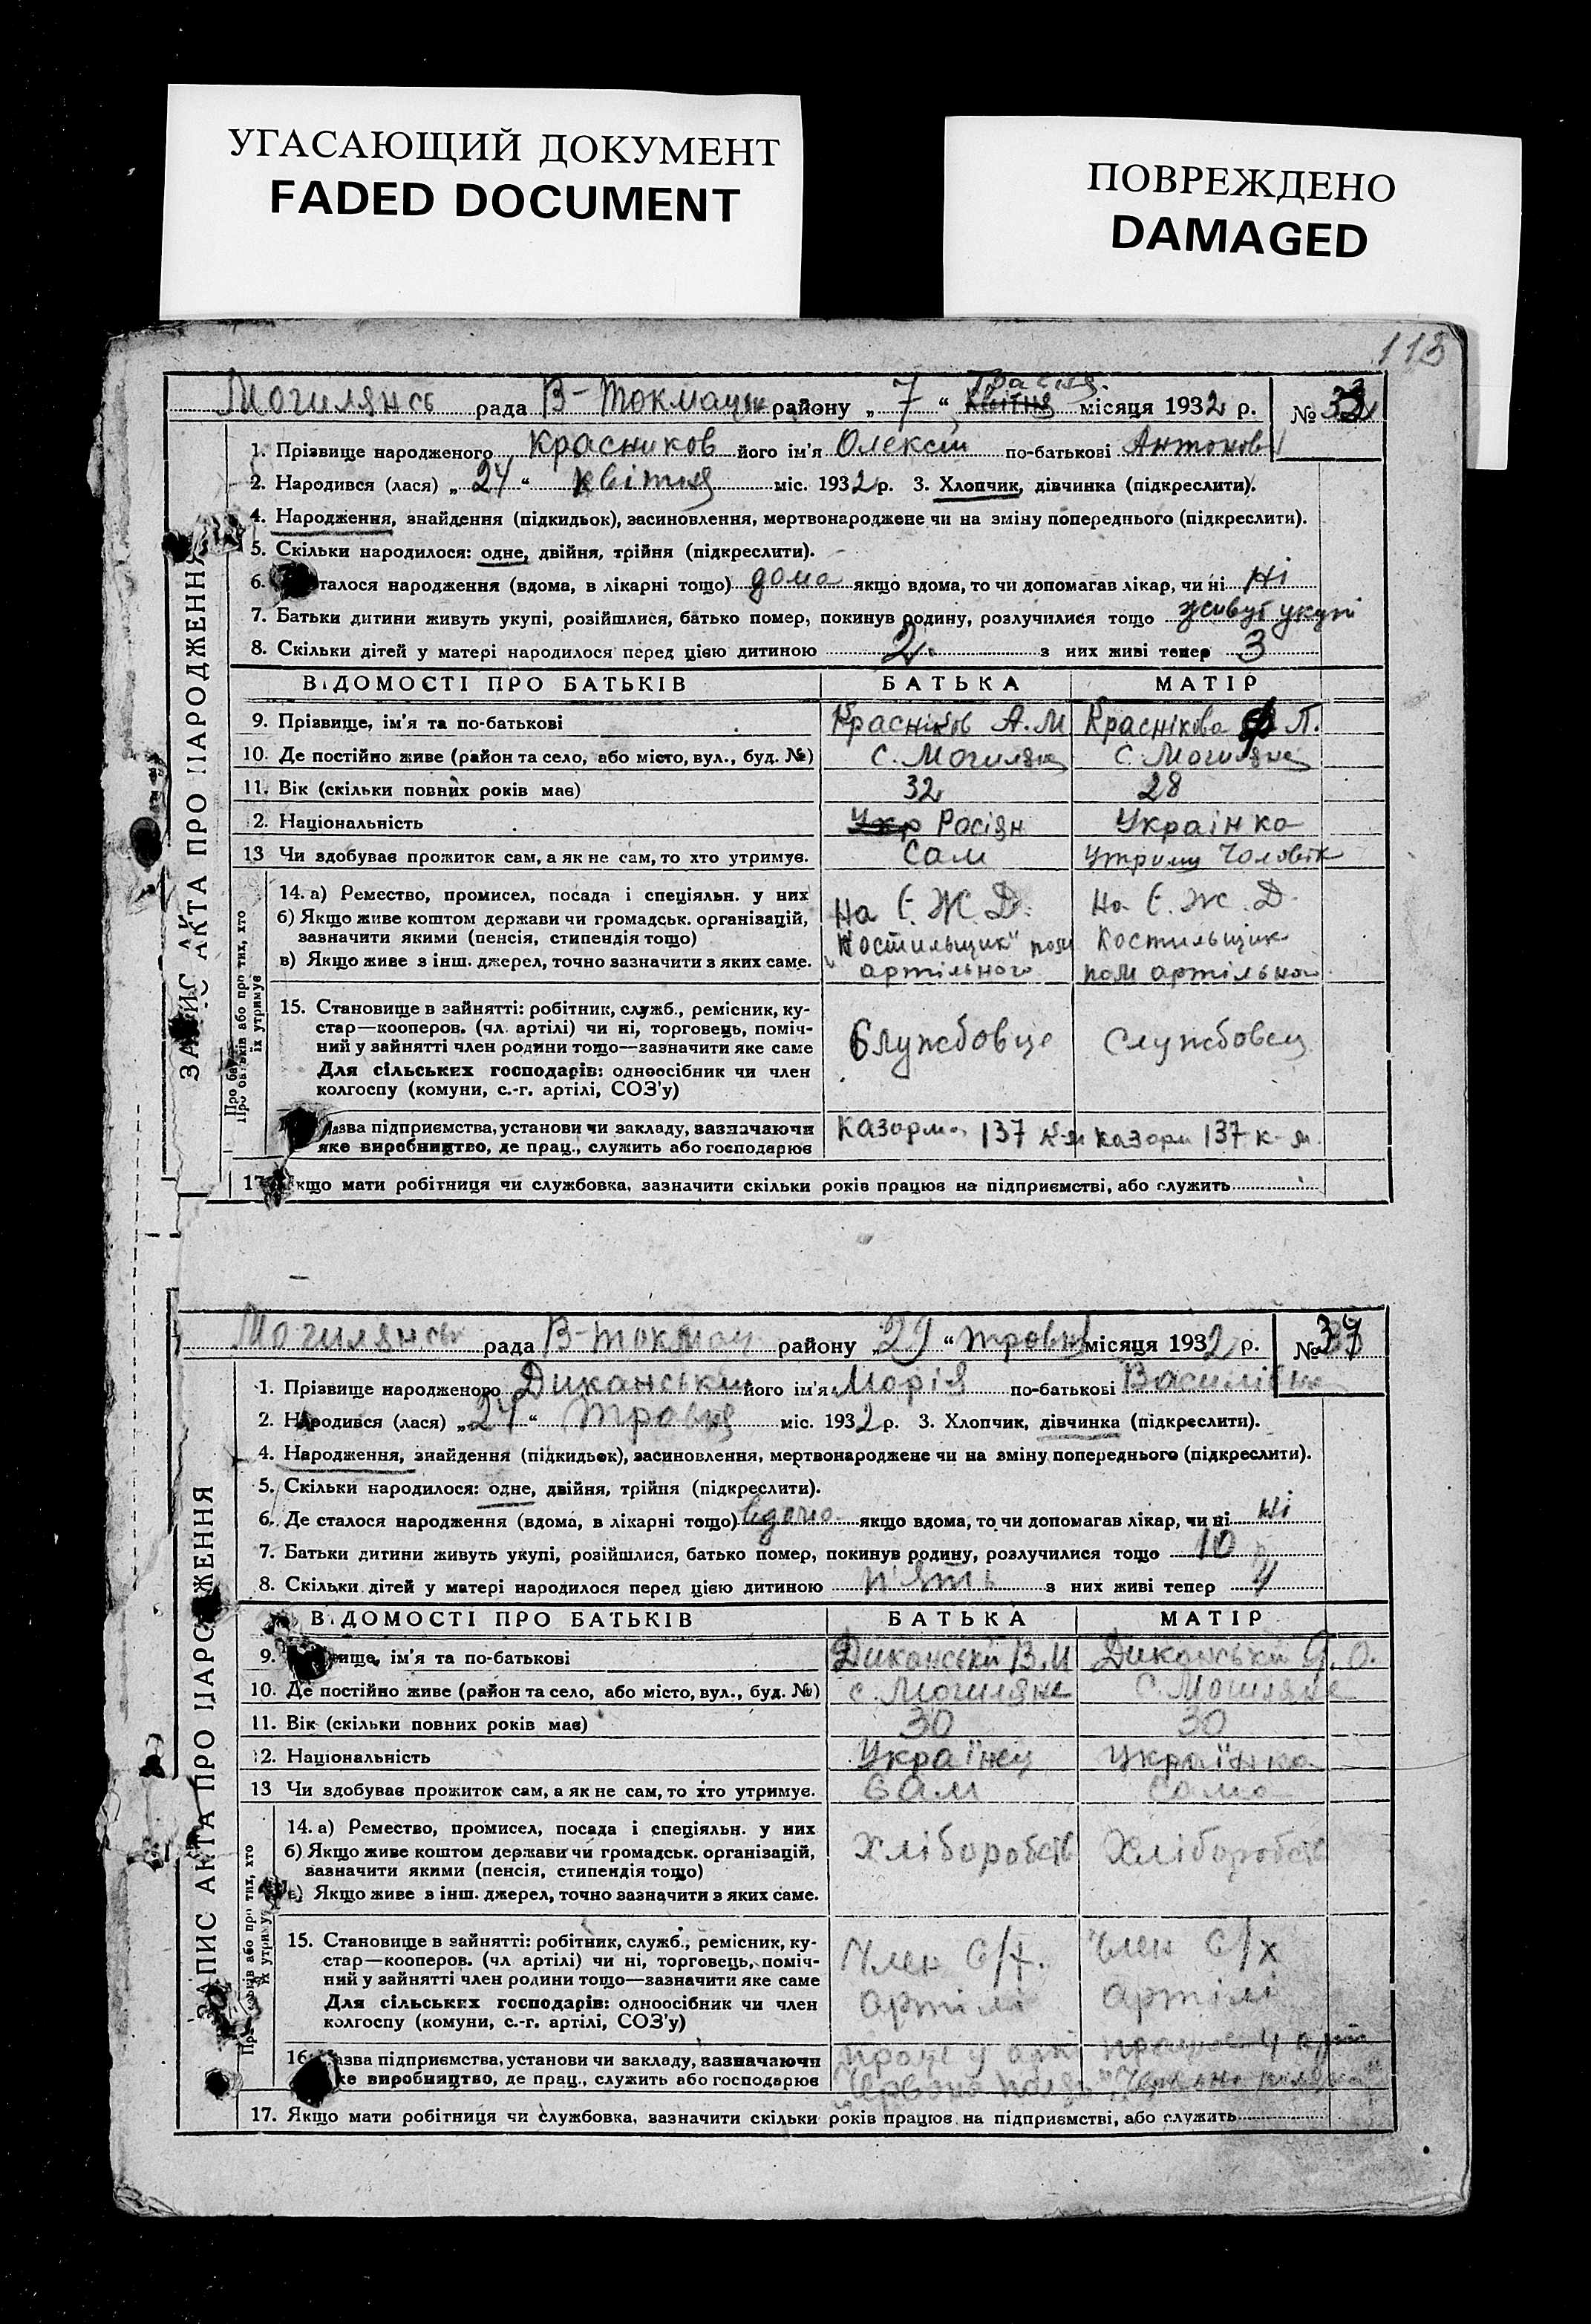 УГАСАЮЩИЙ ДОКУМЕНТ
FADED DOCUMENT
ПОВРЕЖДЕНО
DAMAGED
113
ЗАПИС АКТА ПРО НАРОДЖЕННЯ
Могилянсь рада В-Токмацьк району „ 7 “ Травня квітня місяця 1932 р. №
1. Прізвище народженого Красников його ім'я Олексій по-батькові Антонов
2. Народився (лася) „ 24 “ квітня міс. 1932 р. 3. Хлопчик, дівчинка (підкреслити).
4. Народження, знайдення (підкидьок), засиновлення, мертвонароджене чи на зміну попереднього (підкреслити).
5. Скільки народилося: одне, двійня, трійня (підкреслити).
6. талося народження (вдома, в лікарні тощо) дома якщо вдома, то чи допомагав лікар, чи ні ні
7. Батьки дитини живуть укупі, розійшлися, батько помер, покинув родину, розлучилися тощо живут укупі
8. Скільки дітей у матері народилося перед цією дитиною 2 з них живі тепер 3
ВІДОМОСТІ ПРО БАТЬКІВ БАТЬКА МАТІР
9. Прізвище, ім'я та по-батькові Красніков А.М Краснікова П.
10. Де постійно живе (район та село, або місто, вул., буд. №) С. Могиляни С. Могиляни
11. Вік (скільки повних років має) 32 28
2. Національність Укр Росіян Українка
13 Чи здобуває прожиток сам, а як не сам, то хто утримує. Сам утриму Чоловік
Про батьків або про тих, хто їх утримує
14. а) Ремество, промисел, посада і спеціяльн. у них
б) Якщо живе коштом держави чи громадськ. організацій,
зазначити якими (пенсія, стипендія тощо)
в) Якщо живе з інш. джерел, точно зазначити з яких саме.
На Є. Ж. Д. На Є. Ж. Д.
Костильщик" пом Костильщик
артільного пом артільног
15. Становище в зайнятті: робітник, служб., ремісник, ку-
стар—кооперов. (чл. артілі) чи ні, торговець, поміч-
ний у зайнятті член родини тощо—зазначити яке саме
Для сільських господарів: одноосібник чи член
колгоспу (комуни, с.-г. артілі, СОЗ'у)
Службовце Службовец
азва підприємства, установи чи закладу, зазначаючи
яке виробництво, де прац., служить або господарює
Казарма 137 к-м казарм 137 к-м
17. кщо мати робітниця чи службовка, зазначити скільки років працює на підприємстві, або служить
ЗАПИС АКТА ПРО НАРОДЖЕННЯ
Могилянсь рада В-Токмац району „ 29 “ травня місяця 1932 р. № 37
1. Прізвище народженого Диканський його ім'я Марія по-батькові Василівна
2. Народився (лася) „ 24 “ травня міс. 1932 р. 3. Хлопчик, дівчинка (підкреслити).
4. Народження, знайдення (підкидьок), засиновлення, мертвонароджене чи на зміну попереднього (підкреслити).
5. Скільки народилося: одне, двійня, трійня (підкреслити).
6. Де сталося народження (вдома, в лікарні тощо) вдома якщо вдома, то чи допомагав лікар, чи ні ні
7. Батьки дитини живуть укупі, розійшлися, батько помер, покинув родину, розлучилися тощо 10 р
8. Скільки дітей у матері народилося перед цією дитиною п'ять з них живі тепер 4
ВІДОМОСТІ ПРО БАТЬКІВ БАТЬКА МАТІР
9. вище, ім'я та по-батькові Диканський В.И Диканська Я. О.
10. Де постійно живе (район та село, або місто, вул., буд. №) с. Могиляне С. Могиляне
11. Вік (скільки повних років має) 30 30
2. Національність Українец Українка
13 Чи здобуває прожиток сам, а як не сам, то хто утримує. Сам Сама
14. а) Ремество, промисел, посада і спеціяльн. у них
б) Якщо живе коштом держави чи громадськ. організацій,
зазначити якими (пенсія, стипендія тощо)
в) Якщо живе з інш. джерел, точно зазначити з яких саме.
Хліборобств Хліборобств
15. Становище в зайнятті: робітник, служб., ремісник, ку-
стар—кооперов. (чл артілі) чи ні, торговець, поміч-
ний у зайнятті член родини тощо—зазначити яке саме
Для сільських господарів: одноосібник чи член
колгоспу (комуни, с.-г. артілі, СОЗ'у)
Член С/х. Член С/х
артілі артілі
16. азва підприємства, установи чи закладу, зазначаючи
ке виробництво, де прац., служить або господарює
17. Якщо мати робітниця чи службовка, зазначити скільки років працює на підприємстві, або служить